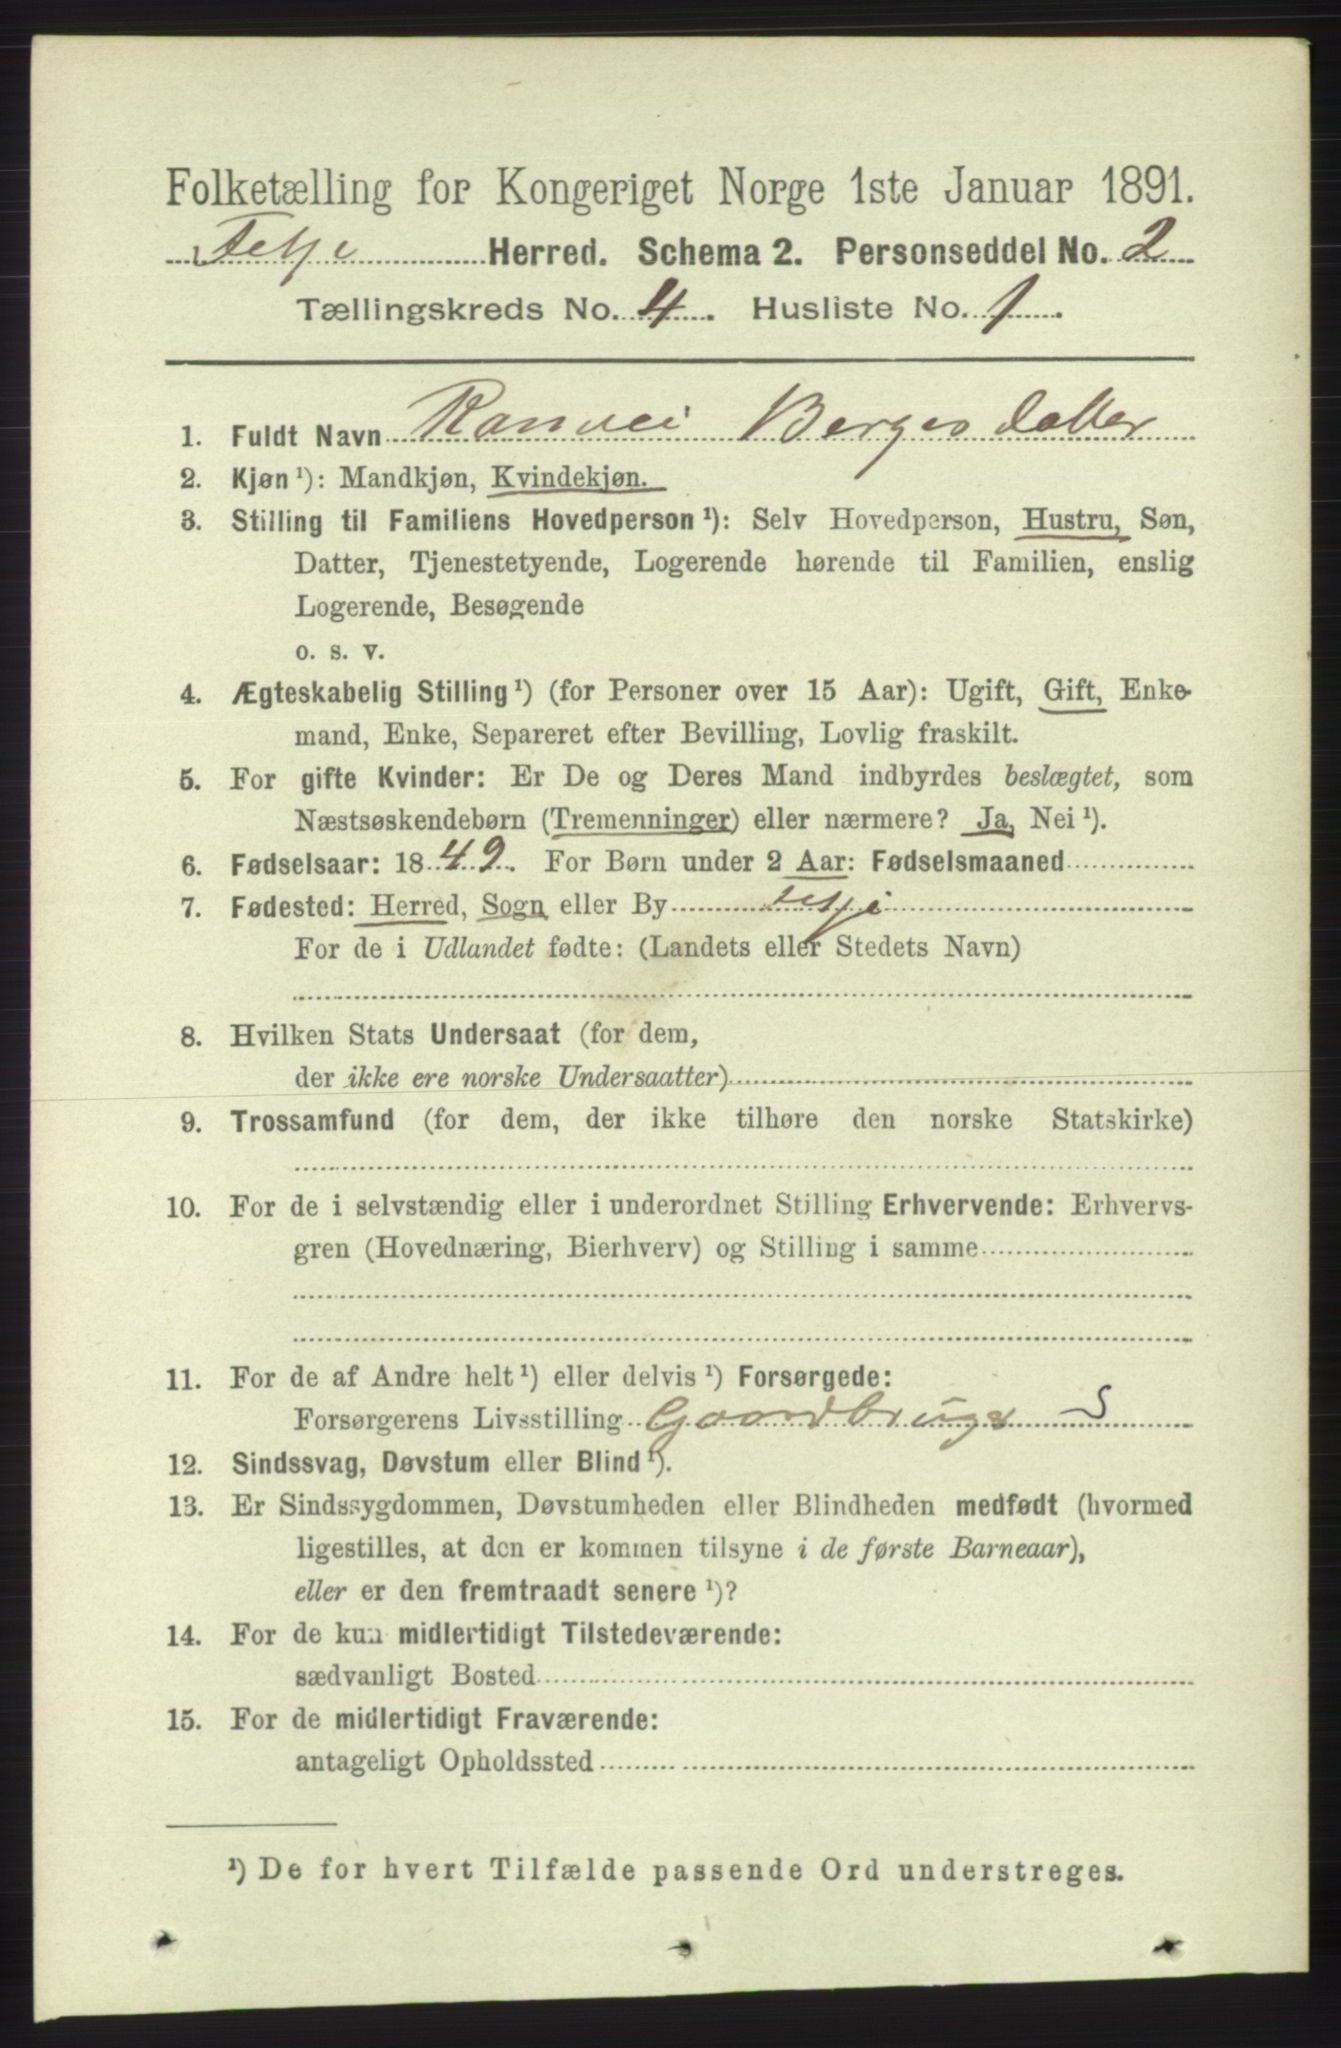 Folketælling for Kongeriget Norge 1ste Januar 1891.
Fetje Herred. Schema 2. Personseddel No. 2
Tællingskreds No. 4. Husliste No. 1.
1. Fuldt Navn Ranvei Bergesdatter
2. Kjøn ¹): Mandkjøn, Kvindekjøn.
3. Stilling til Familiens Hovedperson ¹): Selv Hovedperson, Hustru, Søn,
Datter, Tjenestetyende, Logerende hørende til Familien, enslig
Logerende, Besøgende
o. s. v.
4. Ægteskabelig Stilling ¹) (for Personer over 15 Aar): Ugift, Gift, Enke-
mand, Enke, Separeret efter Bevilling, Lovlig fraskilt.
5. For gifte Kvinder: Er De og Deres Mand indbyrdes beslægtet, som
Næstsøskendebørn (Tremenninger) eller nærmere? Ja, Nei ¹).
6. Fødselsaar: 1849. For Børn under 2 Aar: Fødselsmaaned
7. Fødested: Herred, Sogn eller By Fetje
For de i Udlandet fødte: (Landets eller Stedets Navn)
8. Hvilken Stats Undersaat (for dem,
der ikke ere norske Undersaatter)
9. Trossamfund (for dem, der ikke tilhøre den norske Statskirke)
10. For de i selvstændig eller i underordnet Stilling Erhvervende: Erhvervs-
gren (Hovednæring, Bierhverv) og Stilling i samme
11. For de af Andre helt ¹) eller delvis ¹) Forsørgede:
Forsørgerens Livsstilling Gaardbruger S
12. Sindssvag, Døvstum eller Blind ¹).
13. Er Sindssygdommen, Døvstumheden eller Blindheden medfødt (hvormed
ligestilles, at den er kommen tilsyne i de første Barneaar),
eller er den fremtraadt senere ¹)?
14. For de kun midlertidigt Tilstedeværende:
sædvanligt Bosted
15. For de midlertidigt Fraværende:
antageligt Opholdssted
¹) De for hvert Tilfælde passende Ord understreges.